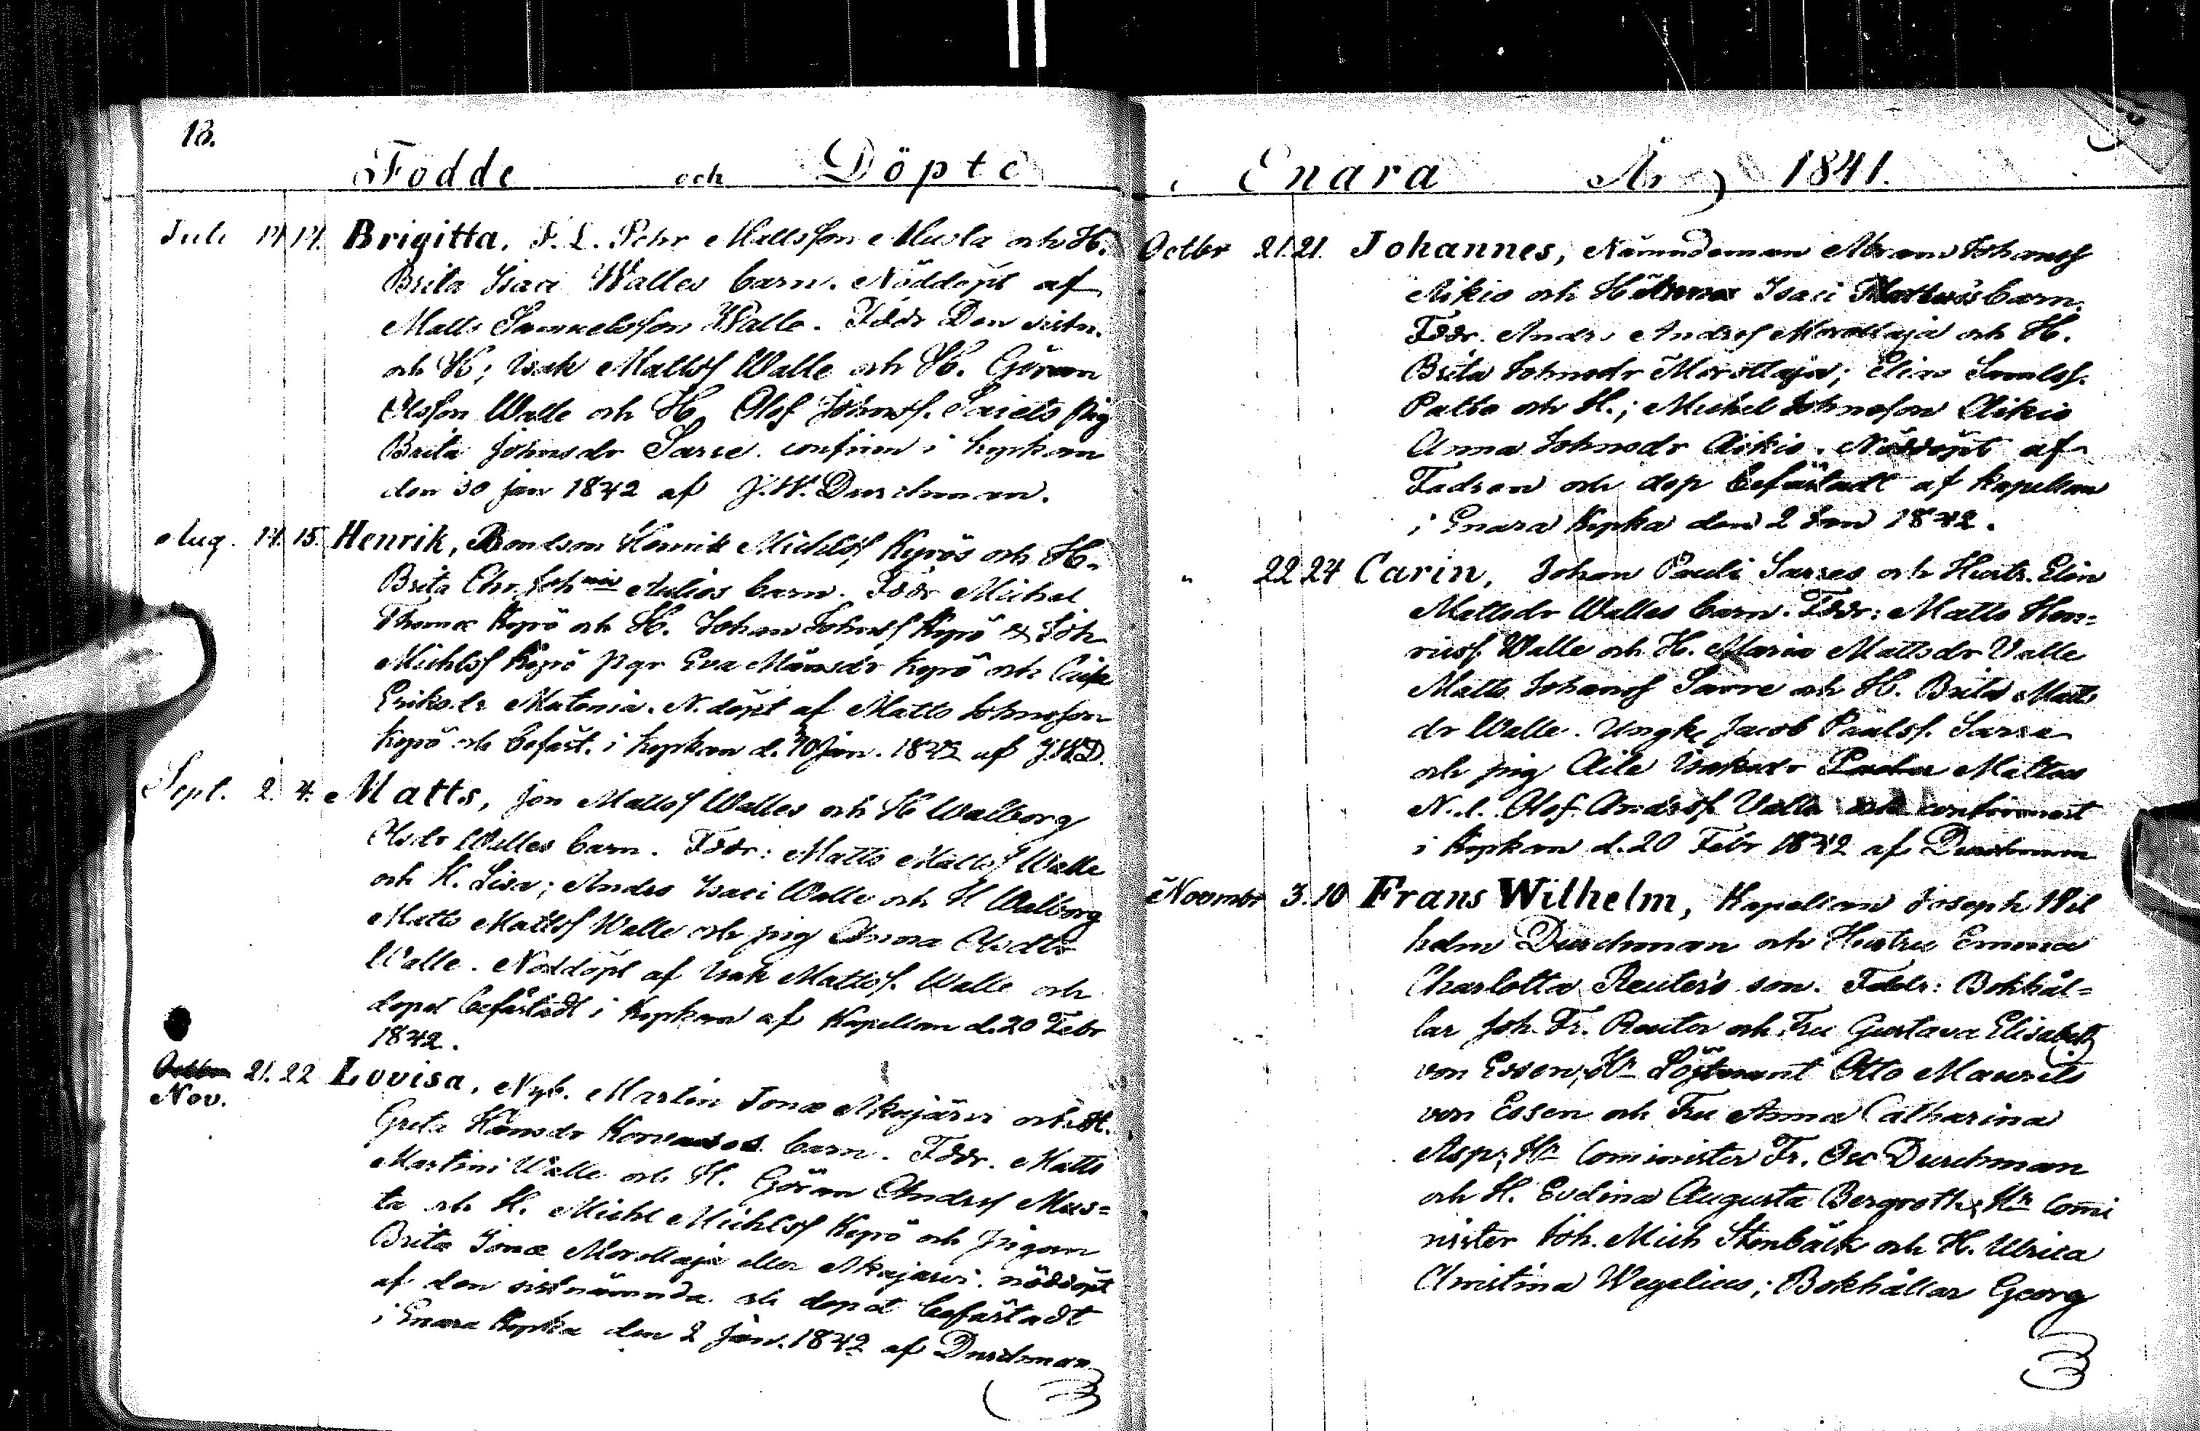 18.
Födde och Döpte
Juli 14 17. Brigitta, F. L. Pehr Mattsson Musta och H.
Brita Isaci Walles barn. Nöddöpt af
Matts Samuelsson Walle. Fddr Den sistn.
och H; Isak Mattsf Walle och H. Göran
Olsson Walle och H. Olof Johansf. Saiets pig
Brita Johnsdr Sarre. confirm i kyrkan
den 30 jan 1842 af J. W. Durchman.
Aug. 14 15. Henrik, Bondson Henrik Michlsf Kyrös och H.
Brita Chr. Joh Aulios barn. Fddr Michel
Thomæ Kyrö och H. Johan Johnsf Kyrö & Joh
Michlsf Kyrö pigr Eva Månsdr Kyrö och Caisa
Eriksdr Mutenia. N. döpt af Matts Johnsson
Kyrö och befäst. i kyrkan d. 30 Jan. 1842 af J. W. D.
Sept. 2 4. Matts, Jon Mattsf Walles och H Walborg
Olsdr Walles barn. Fddr: Matts Mattsf Walle
och H. Lisa; Anders Isaci Walle och H Walborg
Matts Mattsf Walle och pig Anna Olsdtr
Walle. Nöddöpt af Isak Mattsf. Walle och
dopet befästadt i Kyrkan af Kapellan d. 20 Febr
1842.
Octbr 21. 22 Lovisa, Nyb. Martin Jonæ Akujärvi och H.
Nov.
Greta Hansdr Korvanos barn. Fddr. Matts
Martini Walle och H. Göran Andrsf Mus=
ta och H. Michl Michlsf Kyrö och pigan
Brita Jonæ Morottaja eller Akujarvi. nöddöpt
af den sistnämnda och dopet befästadt
i Enara Kyrka den 2 Jan. 1842 af Durchman
i Enara År 1841.
Octbr 21. 21. Johannes, Nämndeman Abram Johansf
Aikio och H Anna Isaci Mattus barn.
Fddr. Andr. Andrsf Morottaja och H.
Brita Johnsdr Morottaja; Elias Samlsf.
Palto och H.; Michel Johnsson Aikio
Anna Johnsdr Aikio. Nöddöpt af
Fadren och dop befästadt af kapellan
i Enara Kyrka den 2 Jan 1842.
" 22 24 Carin, Johan Pauli Sarres och Hustr. Elin
Mattsdr Walles barn. Fddr: Matts Hen=
ricsf. Walle och H. Maria Mattsdr Valle
Matts Johansf Sarre och H. Brita Matts
dr Walle. Yngl. Jacob Paulsf. Sarre
och pig Aile Isaksdr Mattus
N. d. Olof Andrsf. Valle och confirmert
i Kyrkan d. 20 Febr 1842 af Durchman
Novembr 3. 10 Frans Wilhelm, Kapellan Joseph Wil
helm Durchman och Hustru Emma
Charlotta Reuter's son. Faddr: Bokhål=
lar Joh. Fr. Reuter och Fru Gustava Elisabeth
von Essen; Hr Löjtnant Otto Maurits
von Essen och Fru Anna Catharina
Asp; Hr Comminister Fr. Osc Durchman
och H. Evelina Augusta Bergroth; Hr Comi
nister Joh. Mich Stenbäck och H. Ulrica
Christina Wegelius; Bokhållar Georg